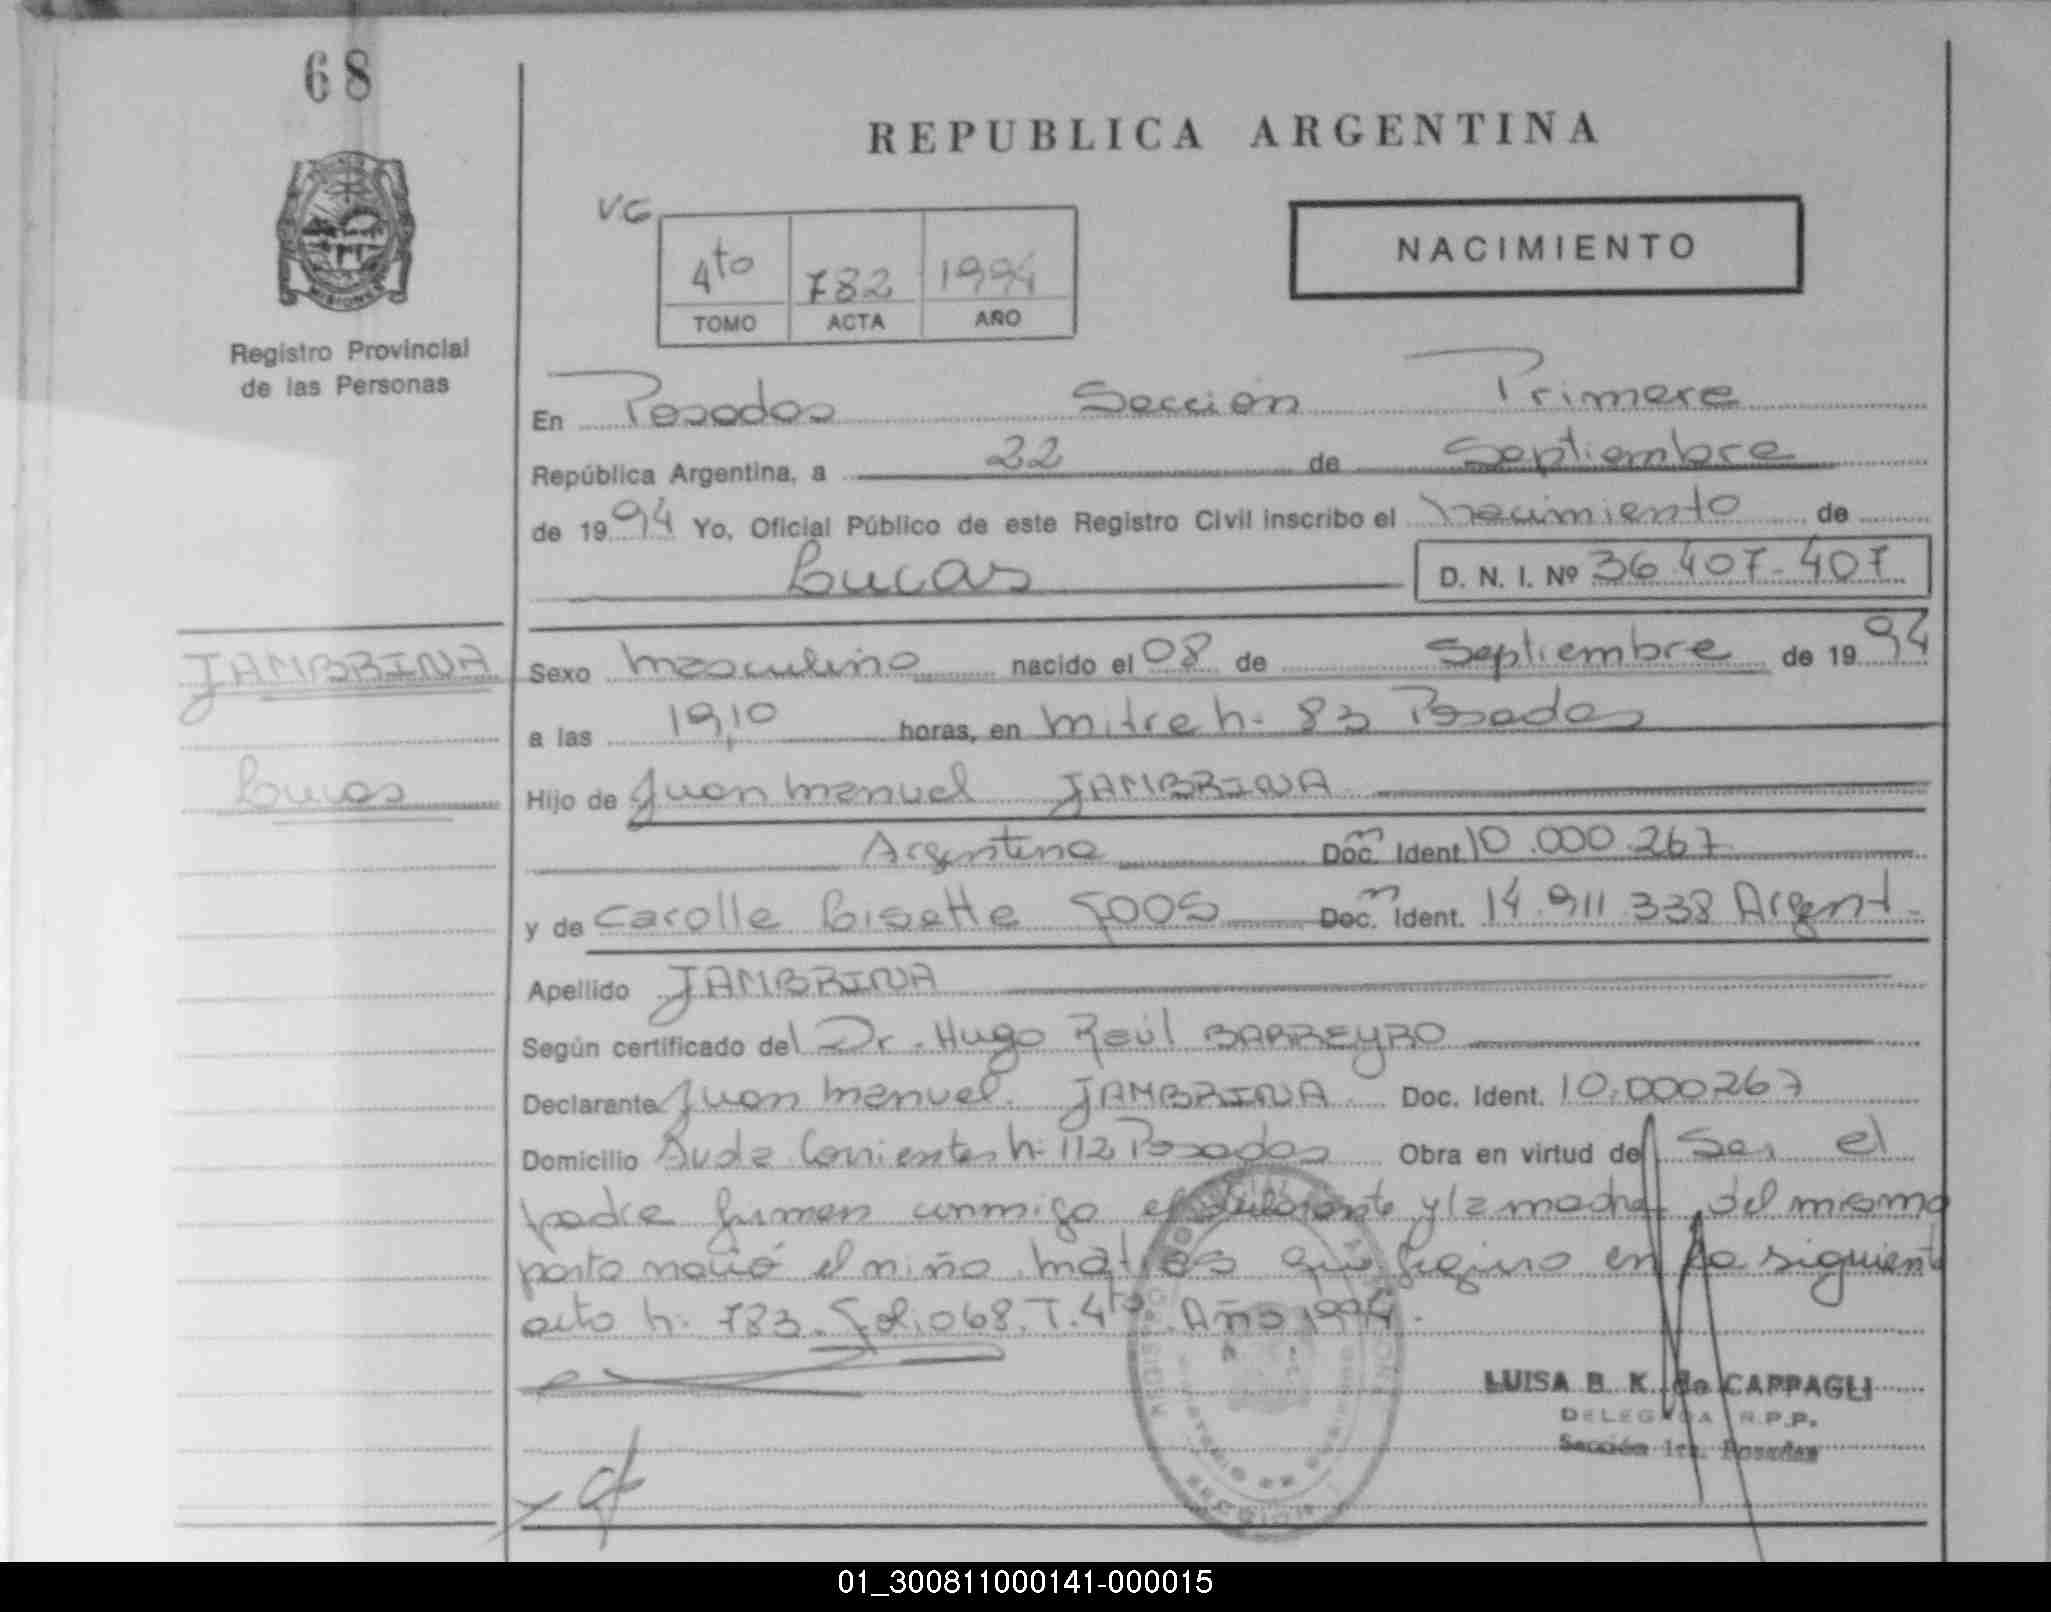 68
REPUBLICA ARGENTINA
MISIONES
Registro Provincial
de las Personas
VG
4to 782 1994
TOMO ACTA AÑO
NACIMIENTO
En Posadas Sección Primera
República Argentina, a 22 de Septiembre
de 1994 Yo, Oficial Público de este Registro Civil inscribo el nacimiento de
Lucas D. N. I. Nº 36.407.407
JAMBRINA
Lucas
Sexo masculino nacido el 08 de Septiembre de 1994
a las 19,10 horas, en mitre n. 83 Posadas
Hijo de Juan manuel JAMBRINA
Argentina Doc. Ident 10.000.267
y de Carolle Lisette FOOS Doc. Ident. 14.911.338 Argent.
Apellido JAMBRINA
Según certificado del Dr. Hugo Raúl BARREYRO
Declarante Juan manuel JAMBRINA Doc. Ident. 10.000267
Domicilio Avda Corrientes n. 112 Posadas Obra en virtud de Ser el
padre firman conmigo el declarante y la madre del mismo
parto nació el niño matias que figura en la siguiente
acta n. 783. Fol. 068. T. 4to Año 1994.
LUISA B. K. de CAPPAGLI
DELEGADA R.P.P.
Sección 1ra. Posadas
01_300811000141-000015